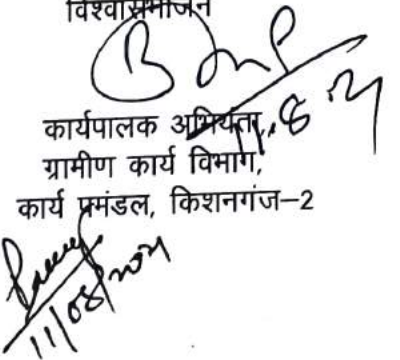 विश्वासभाजन
11.8.21
कार्यपालक अभियंता,
ग्रामीण कार्य विभाग,
कार्य प्रमंडल, किशनगंज–2
11/08/2021